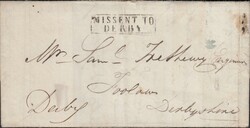 MISSENT TO
DERBY
Mr. Saml. Trethewy
Derby
Derbyshire